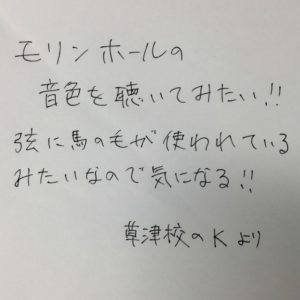 モリンホールの
音色を聴いてみたい!!
弦に馬の毛が使われている
みたいなので気になる!!
草津校のKより